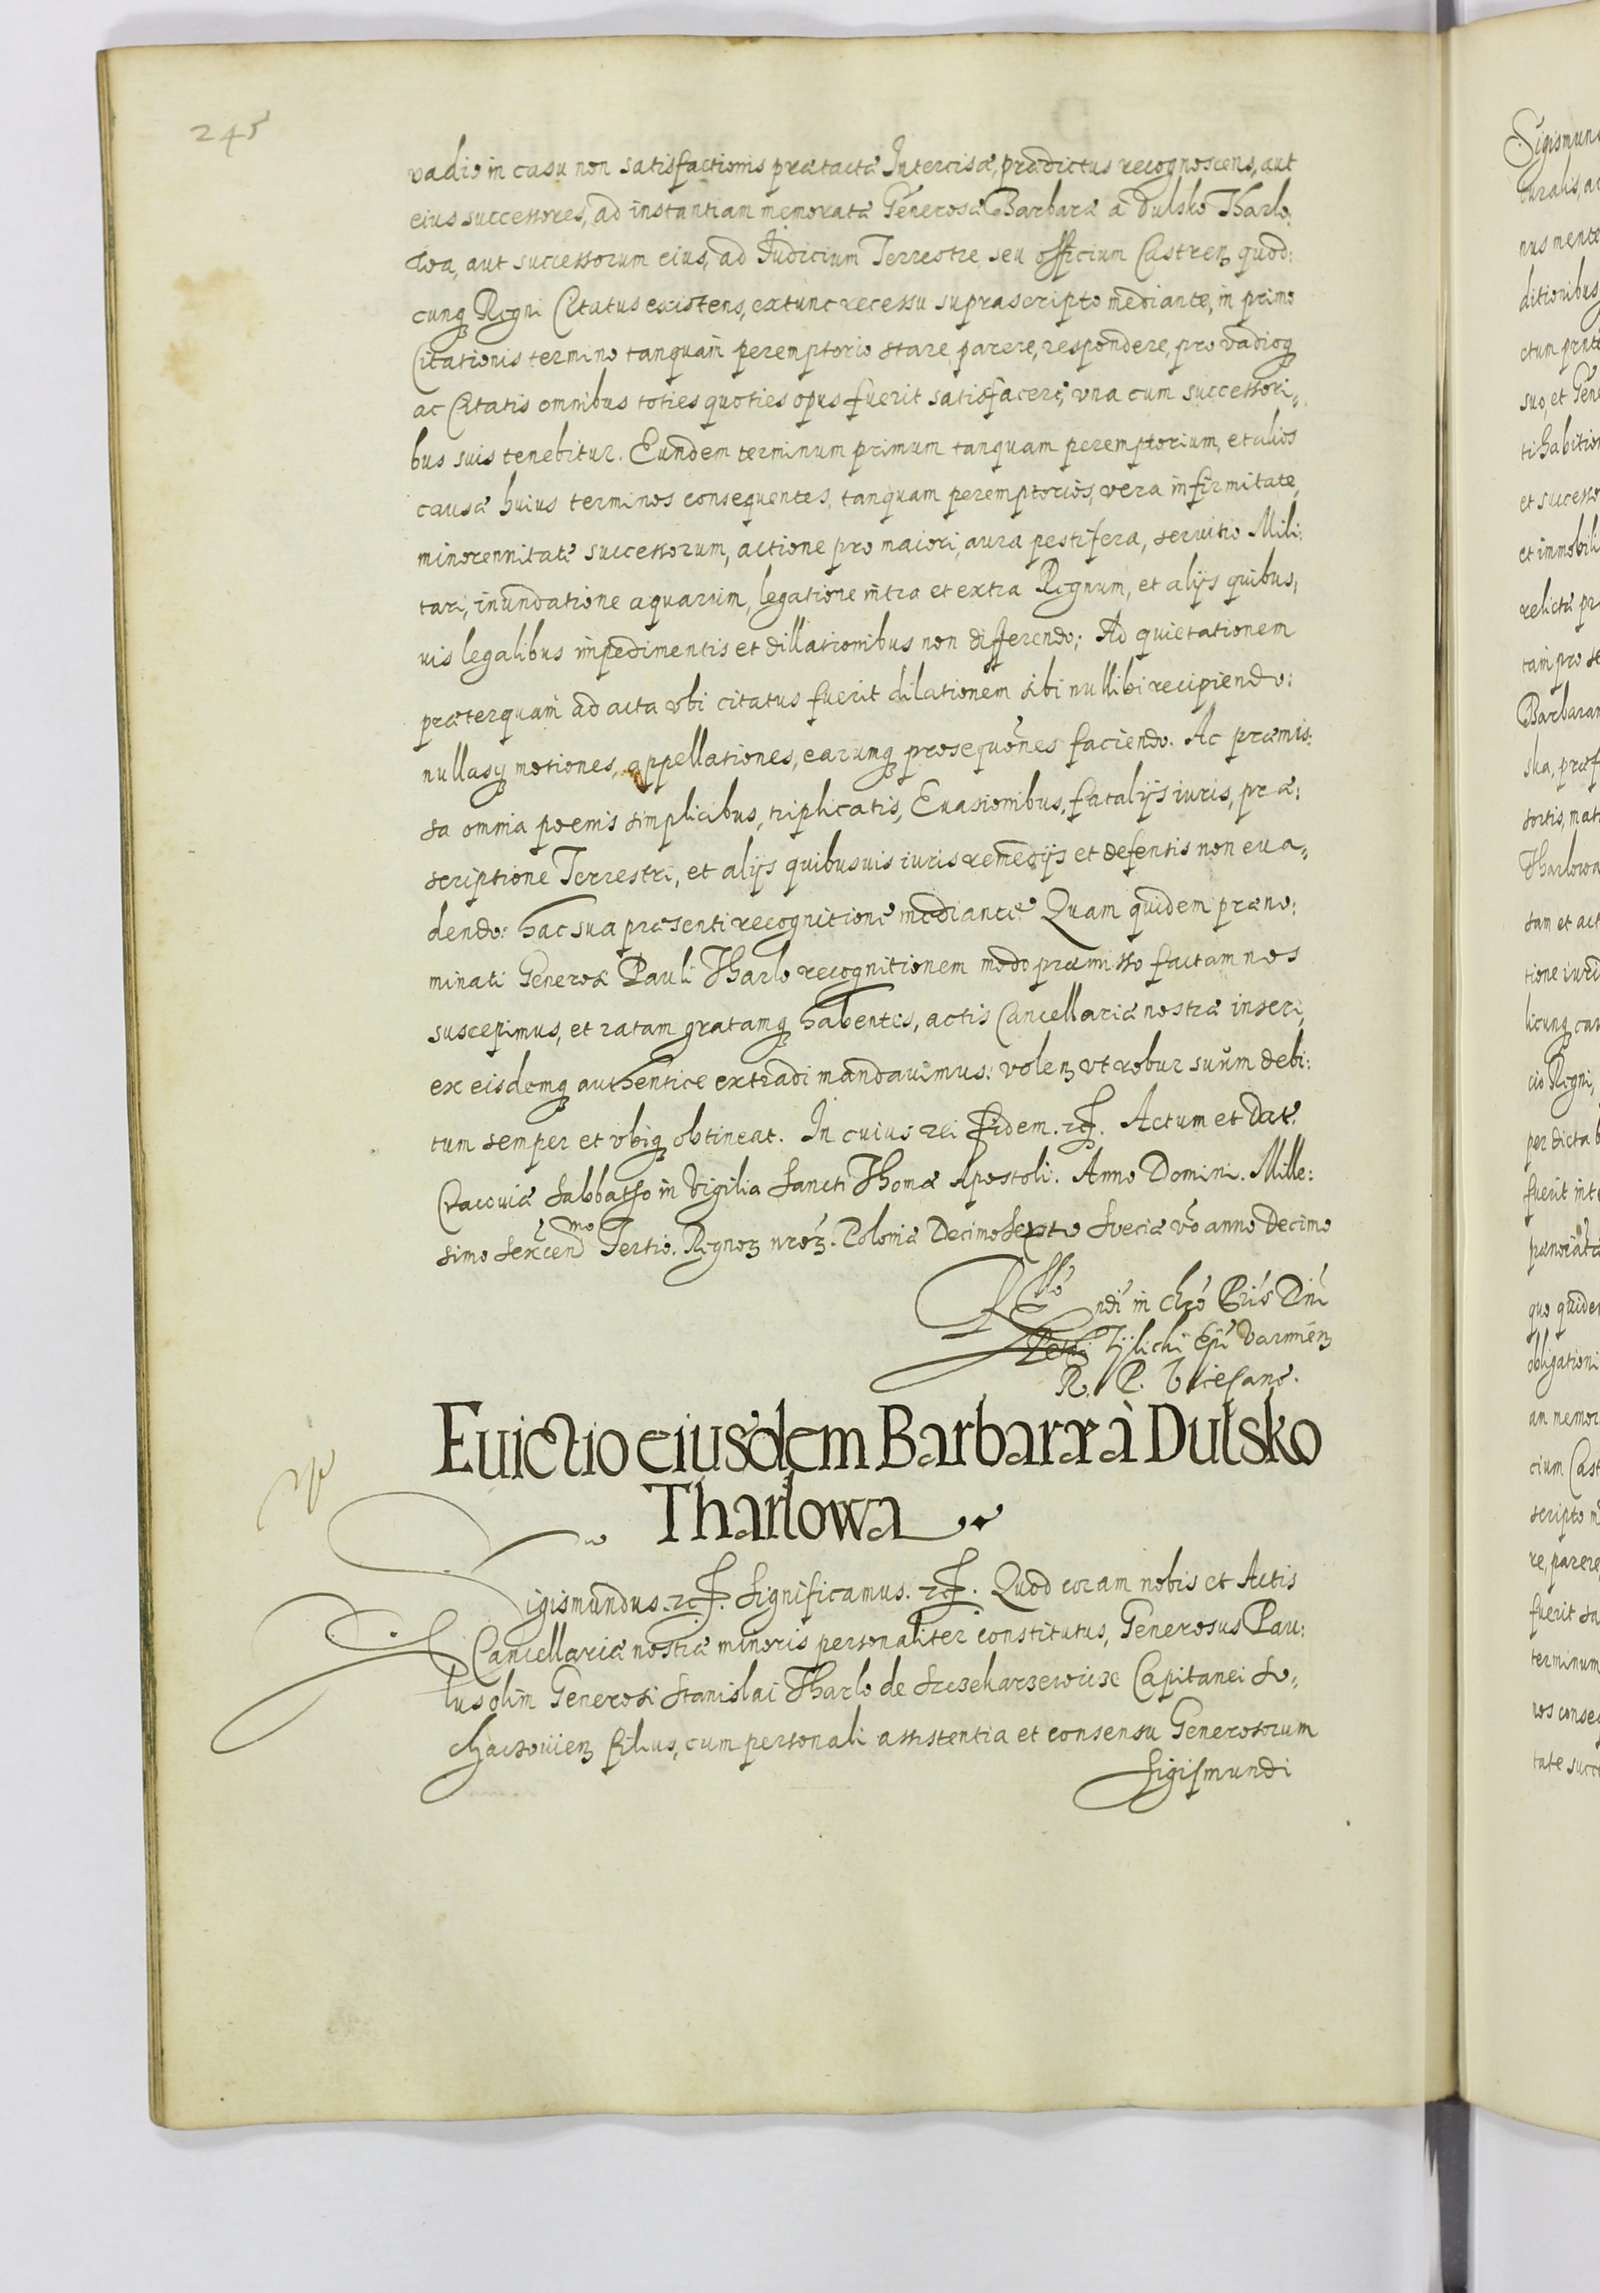 245
vadio in casu non satisfactionis prætactæ Intercisæ, prædictus recognoscens, aut
eius successores, ad instantiam memoratæ Generosæ Barbaræ à Dulsko Tharlo:
wa, aut successorum eius, ad Iudicium Terrestre seu officium Castren̄ quod:
cunq̄ Regni Citatus existens, extunc recessu suprascripto mediante, in primo
Citationis termino tanquam̄ peremptorio stare, parere, respondere, pro vadioq̄
ac Citatis omnibus toties quoties opus fuerit satisfacere, vna cum successori„
bus suis tenebitur. Eundem terminum primum tanquam peremptorium, et alios
causæ huius terminos consequentes, tanquam peremptorios, vera infirmitate,
minorennitate successorum, actione pro maiori, aura pestifera, seruitio Mili:
tari, inundatione aquarum, legatione intra et extra Regnum, et alijs quibus,
uis legalibus impedimentis et dillationibus non differendo; Ad quietationem
præterquam̄ ad acta vbi citatus fuerit dilationem sibi nullibi recipiendo:
nullasq̄ motiones, appellationes, earumq̄ prosequōnes faciendo. Ac præmis:
sa omnia poenis simplicibus, triplicatis, Euasionibus, fatalijs iuris, præ:
scriptione Terrestri, et alijs quibusuis iuris remedijs et defensis non eua„
dendo: hac sua præsenti recognitione mediante. Quam quidem præno:
minati Generosi Pauli Tharlo recognitionem modo præmisso factam nos
suscepimus, et ratam gratamq̄ habentes, actis Cancellariæ nostræ inseri,
ex eisdemq̄ authentice extradi mandauimus: volen̄ vt robur suum debi:
tum semper et vbiq̄ obtineat. In cuius rei fidem. rcȷ̄. Actum et Dat.
Cracouiæ Sabbatho in Vigilia Sancti Thomæ Apostoli. Anno Domini. Mille:
simo Sexcen̄ᵐᵒ Tertio. Regnor̄ nrōr̄. Poloniæ Decimosexto Sveciæ vō anno Decimo
Rllō ndi in Chrō Pris Dnī
Petri Tijlicki Epī Varmien̄
R. P. Vicecanc.
Euictio eiusdem Barbaræ à Dulsko
Tharlowa
Sigismundus. rcȷ̄. Significamus. rcȷ̄. Quod coram nobis et Actis
Cancellariæ nostræ minoris personaliter constitutus, Generosus Pau:
lus olim Generosi Stanislai Tharlo de Sczekarzewicze Capitanei So„
chaczouien̄ filius, cum personali assistentia et consensu Generosorum
Sigismundi